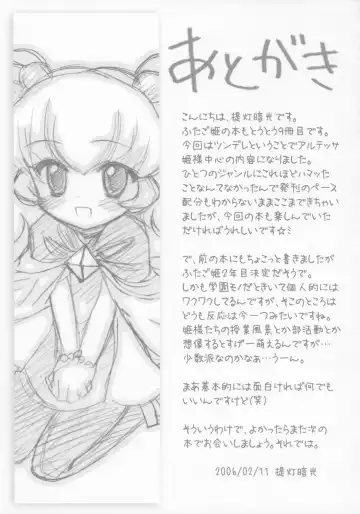 あとがき
こんにちは、提灯暗光です。
ふたご姫の本もとうとう9冊目です。
今回はツンデレということでアルテッサ
姫様中心の内容になりました。
ひとつのジャンルにこれほどハマッた
ことなんてなかったんで発刊のペース
配分もわからないままここまできちゃい
ましたが、今回の本も楽しんでいた
だければうれしいです☆ミ
で、前の本にもちょこっと書きましたが
ふたご姫2年目決定だそうで。
しかも学園モノだときいて個人的には
ワクワクしてるんですが、そこのところは
どうも反応は今一つみたいですね。
姫様たちの授業風景とか部活動とか
想像するとすげー萌えるんですが…
少数派なのかなぁ…うーん。
まあ基本的には面白ければ何でも
いいんですけど(笑)
そういうわけで、よかったらまた次の
本でお会いしましょう。それでは。
2006/02/11 提灯暗光